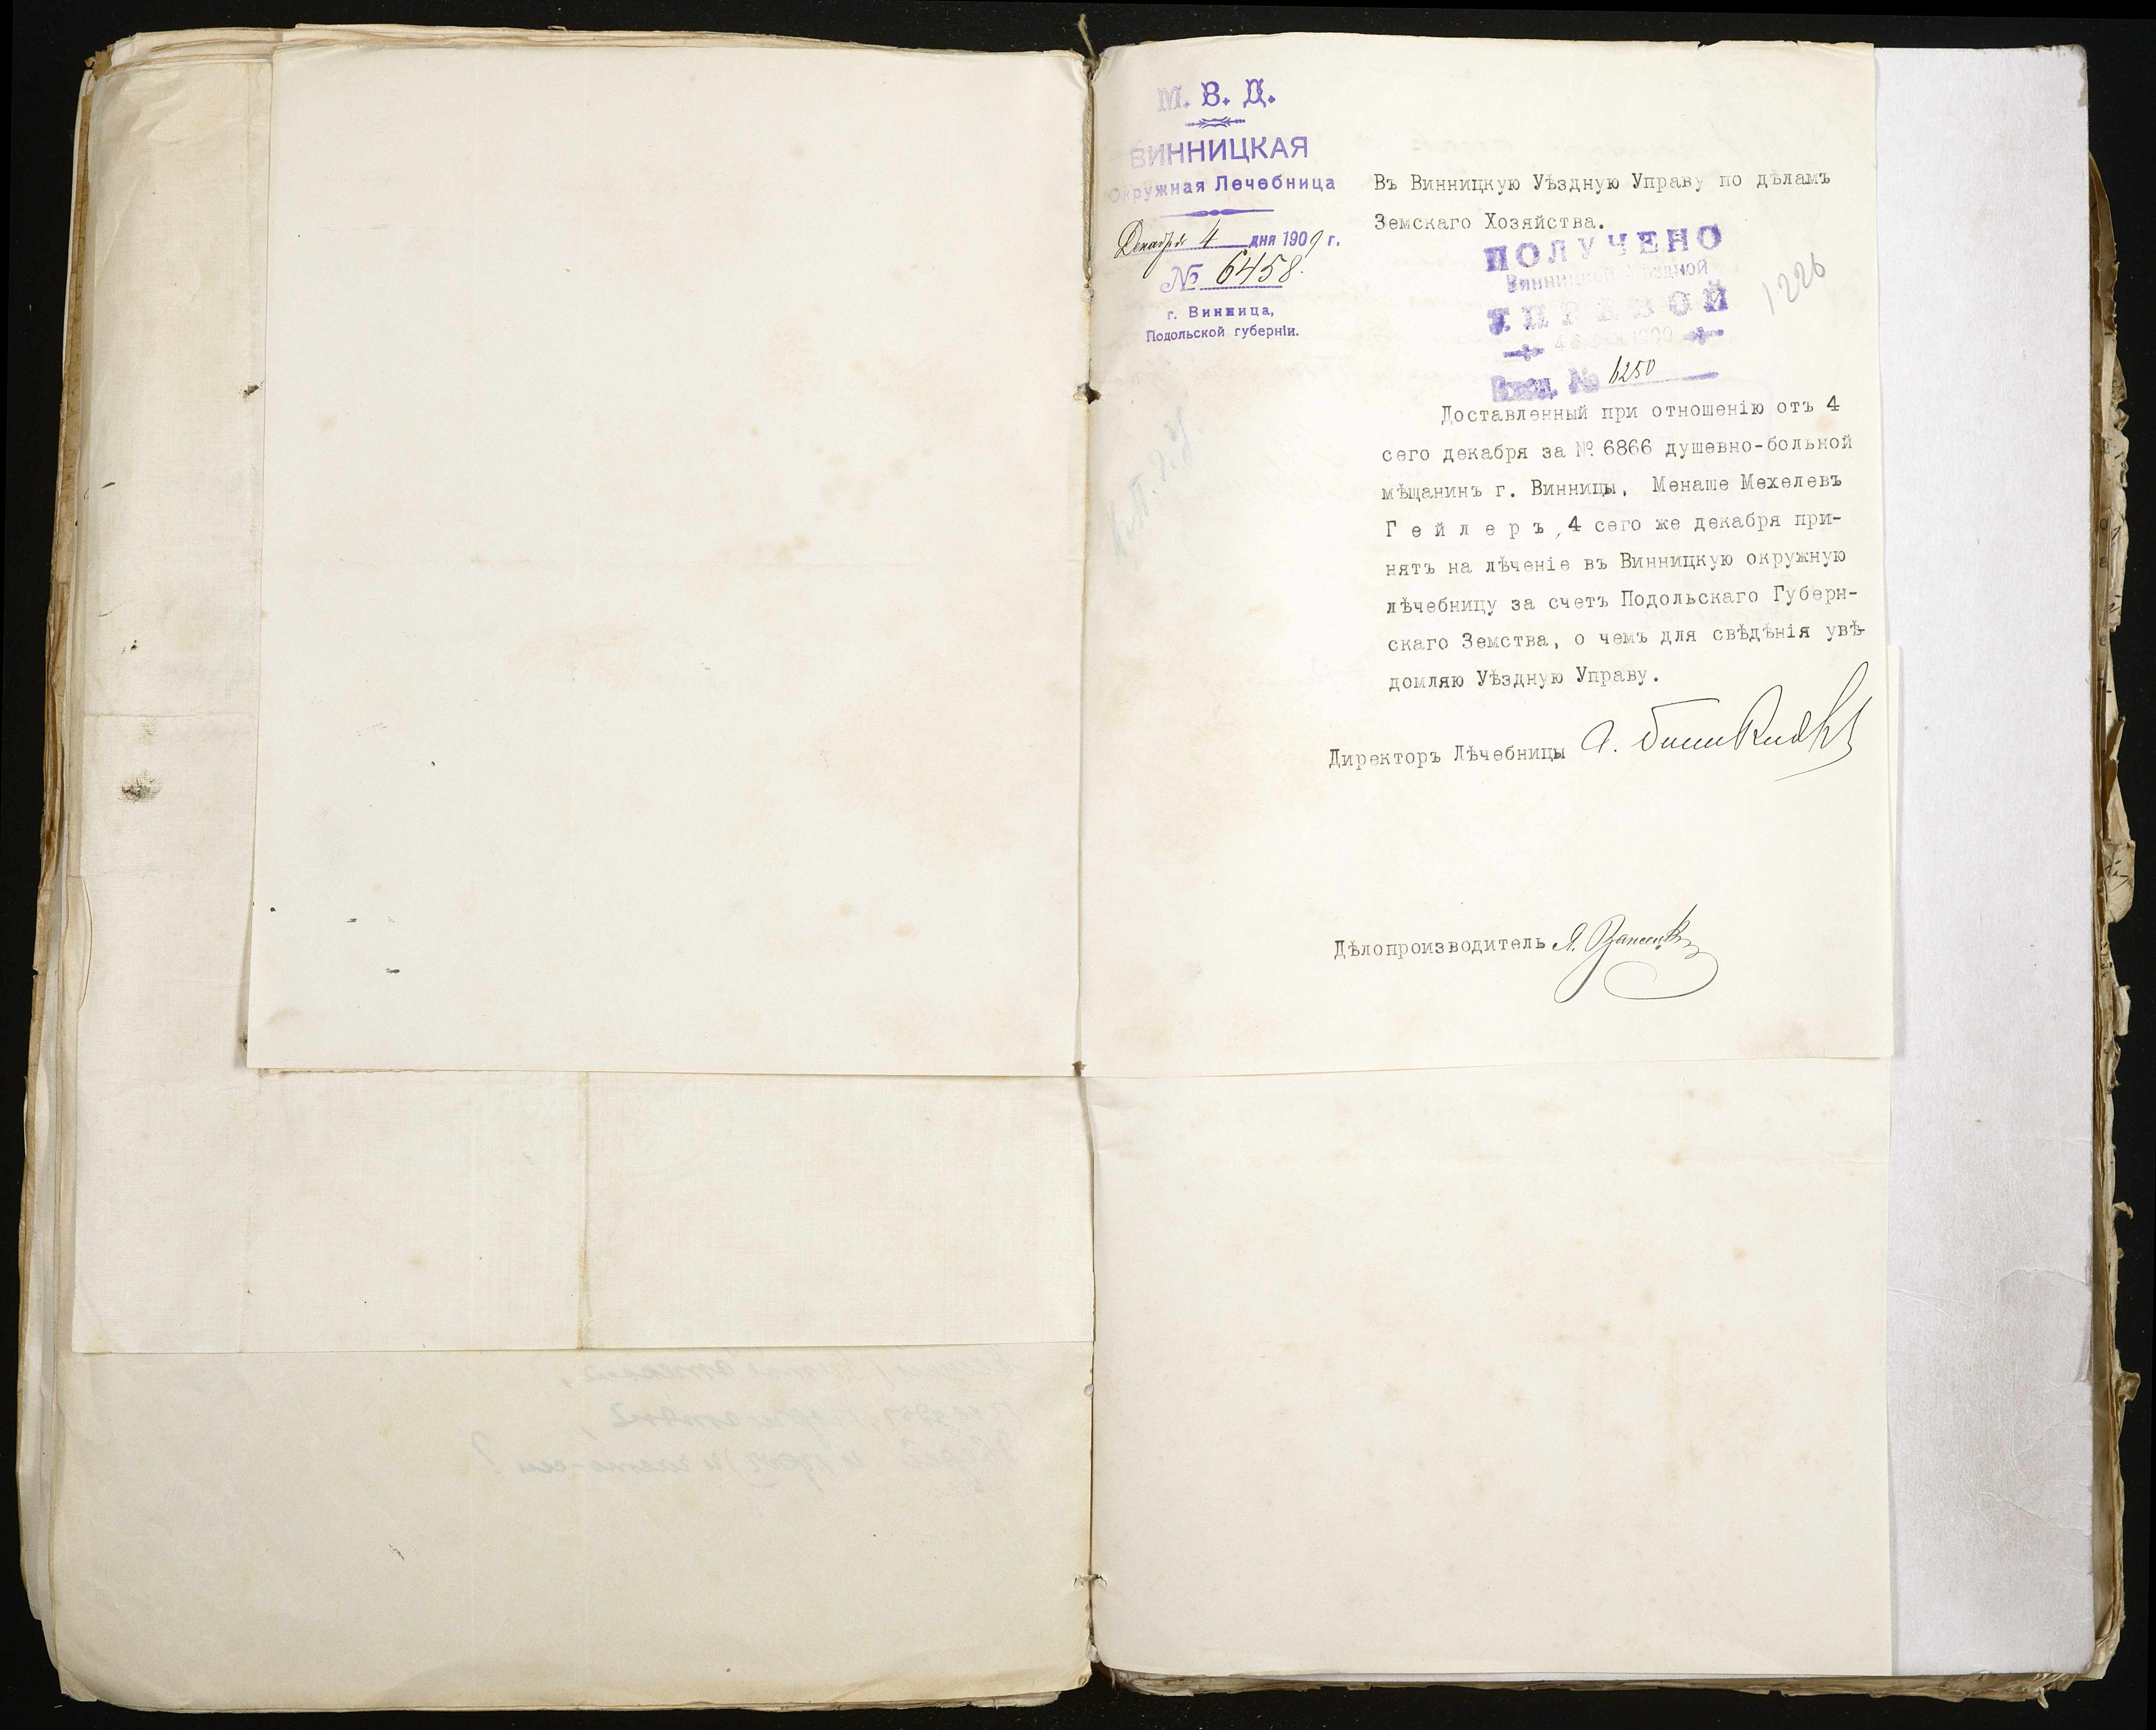 М. В. Д.
ВИННИЦКАЯ
Окружная Лечебница
Декабря 4 дня 1909 г.
№ 6458.
г. Винница,
Подольской губерніи.
Въ Винницкую Уѣздную Управу по дѣламъ
Земскаго Хозяйства.
ПОЛУЧЕНО
Винницкой Уѣздной
УПРАВОЙ
1226
Вход. № 6250
Доставленный при отношенію отъ 4
сего декабря за № 6866 душевно-больной
мѣщанинъ г. Винницы, Менаше Мехелевъ
Гейлеръ, 4 сего же декабря при-
нятъ на лѣченіе въ Винницкую окружную
лѣчебницу за счетъ Подольскаго Губерн-
скаго Земства, о чемъ для свѣдѣнія увѣ-
домляю Уѣздную Управу.
Директоръ Лѣчебницы
Дѣлопроизводитель